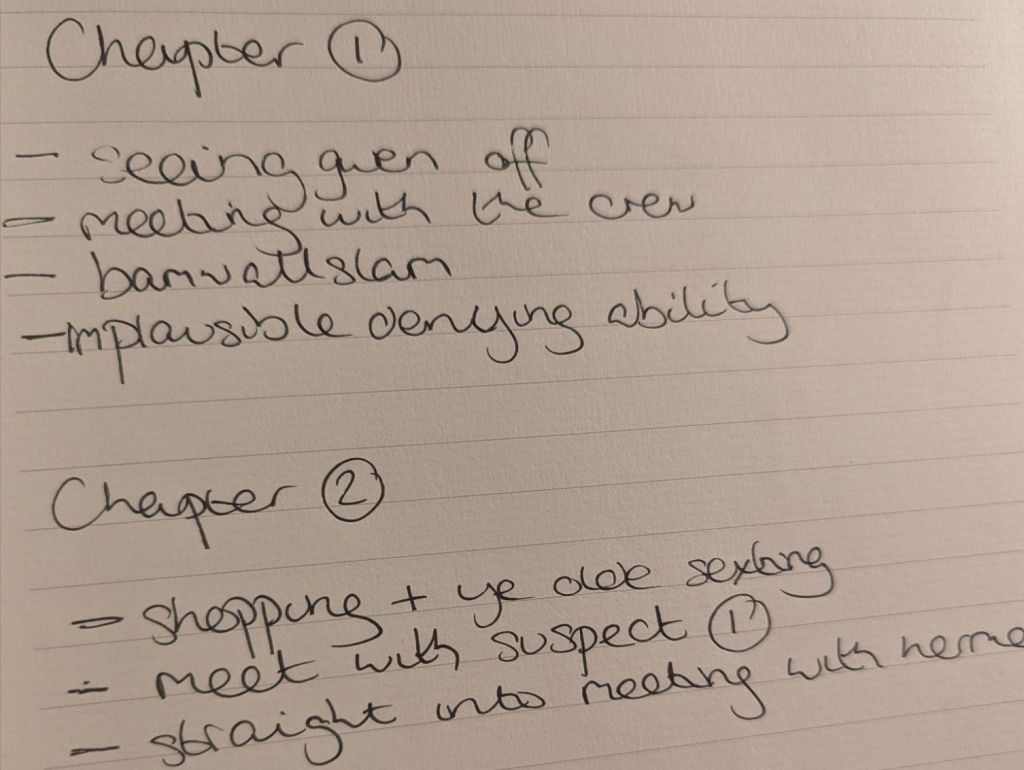 Chapter ①
- seeing gwen off
- meeting with the crew
- banwallslam
- implausible denying ability
Chapter ②
- shopping + ye olde sexting
- meet with suspect ①
- straight into meeting with